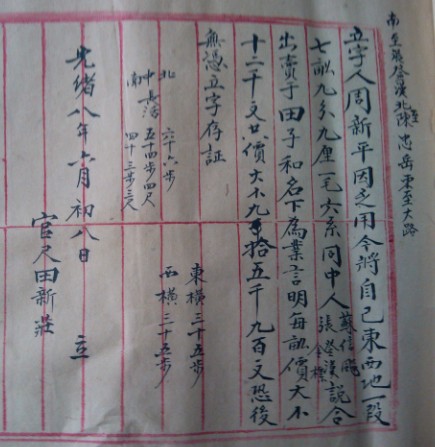 南至張登漢北至陳忠岳東至大路
立字人周新平因乏用今將自己東西地一段
七畝九分九厘一毛六系同中人 蘇信 張登漢 說合
出賣于田子和名下為業言明每畝價大不
十二千文共價大不九拾五千九百文恐後
無憑立字存証
東橫三十五步
西橫三十五步
北 六十六步
中長活 五十四步四尺
南 四十三步三尺
光緒八年 月初八日 立
官尺田新莊